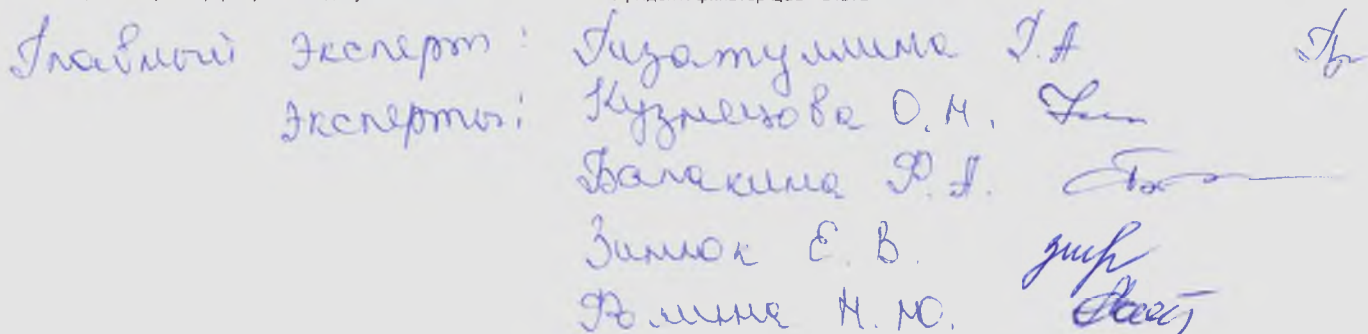 Главный эксперт: Гизатуллина Г.А
Эксперты: Кузнецова О.Н.
Балакина Р.А.
Зинюк Е.В.
Н.Ю.